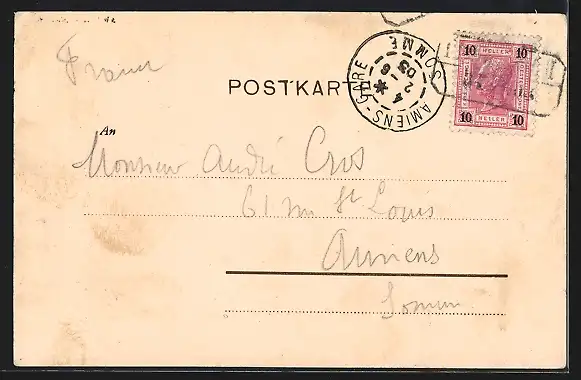 France
POSTKARTE
AMIENS-GARE SOMME
2 4
6 03
10 HELLER 10
10 HELLER 10
An
Monsieur André Cros
61 rue St Louis
Amiens
Somme